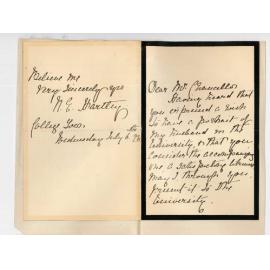 Dear Mr Chancellor
Having heard that
you expressed a wish
to have a portrait of
my husband in the
University, & that you
consider the accompanying
one a satisfactory likeness
may I through you
present it to the
University.
Believe me
Very Sincerely yrs
Hartley
College Town.
Wednesday July 6th